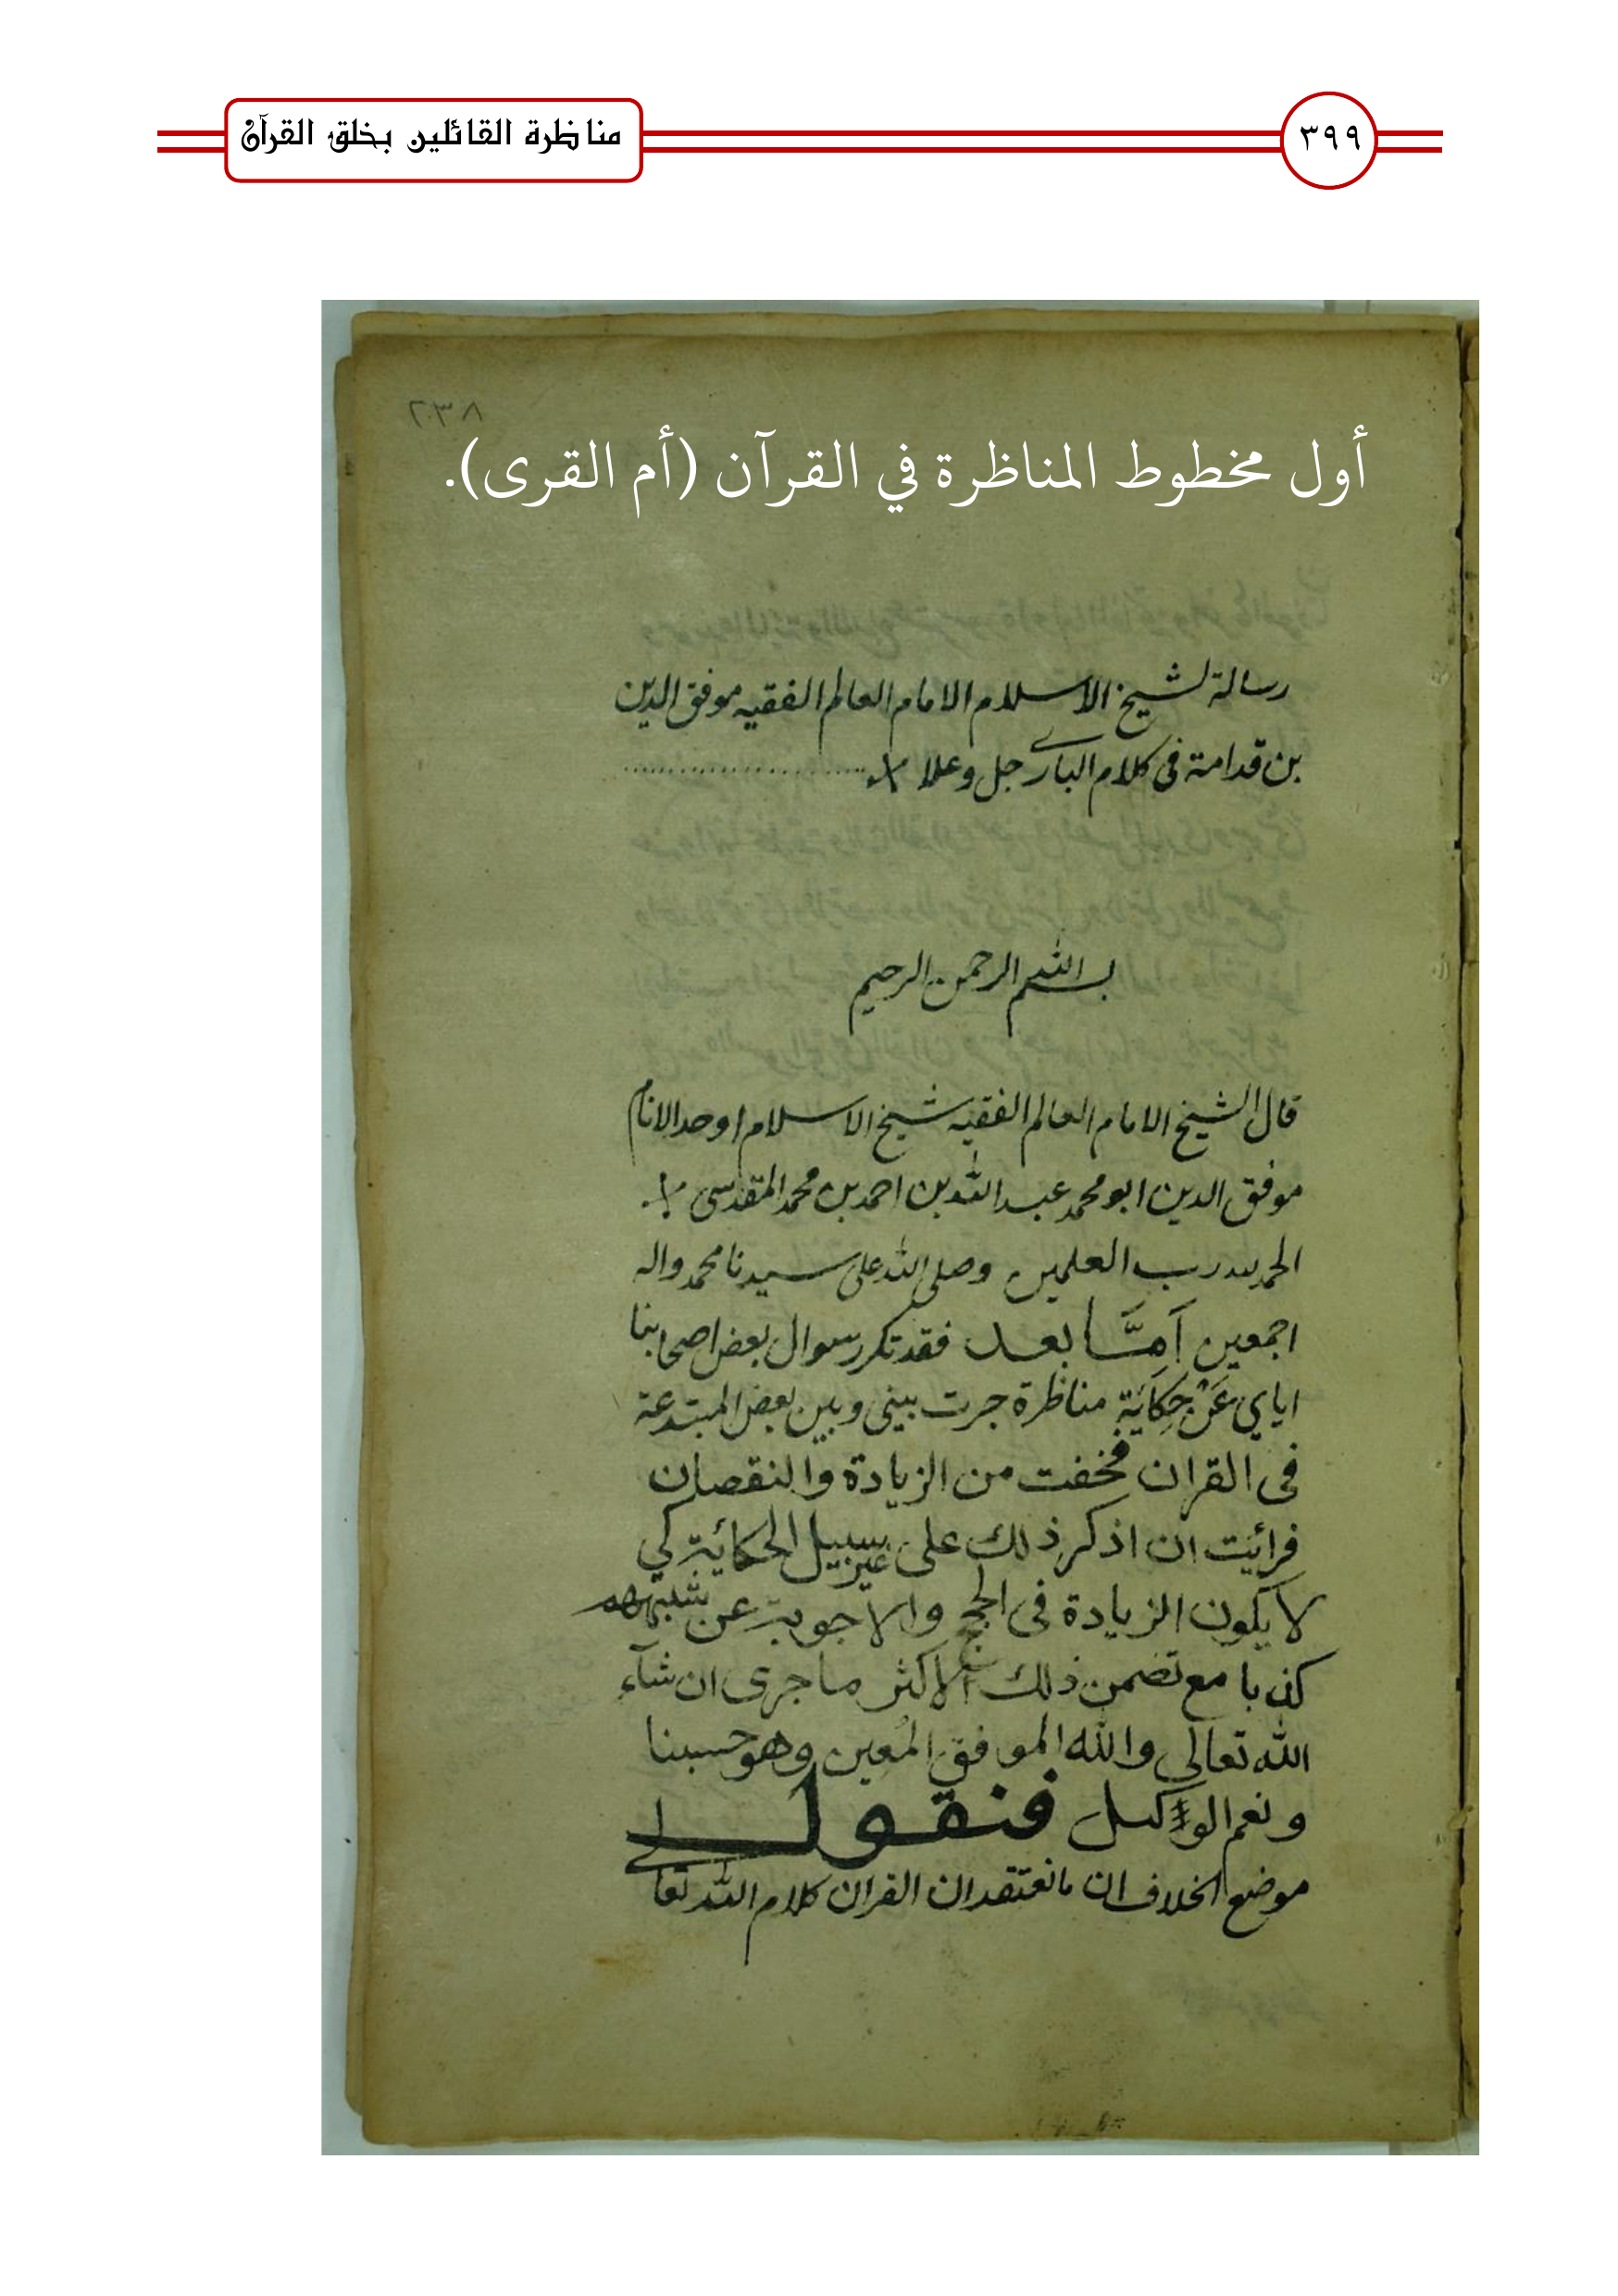 مناظرة القائلين بخلق القرآن
٣٩٩
٢٠٣٨
أول مخطوط المناظرة في القرآن (أم القرى).
رسالة لشيخ الاسلام الامام العالم الفقيه موفق الدين
بن قدامة فى كلام الباري جل وعلا
بسم الله الرحمن الرحيم
قال الشيخ الامام العالم الفقيه شيخ الاسلام اوحد الانام
موفق الدين ابو محمد عبد الله بن احمد بن محمد المقدسى
الحمد لله رب العلمين وصلى الله على سيدنا محمد واله
اجمعين اَمَّا بعد فقد تكرر سوال بعض اصحابنا
اياي عَنْ حِكَايَةِ مناظرة جرت بينى وبين بعض المبتدعة
فى القران فخفت من الزيادة والنقصان
فرائيت ان اذكر ذلك على غير سبيل الحكائية كي
لا يكون الزيادة فى الحجج والاجوبة عن شبههم
كذبا مع تضمن ذلك الاكثر ما جرى ان شآء
الله تعالى والله الموفق المُعين وهو حسبنا
ونعم الوكيل فنقول
موضع الخلاف ان مانعتقد ان القران كلام الله تعالى